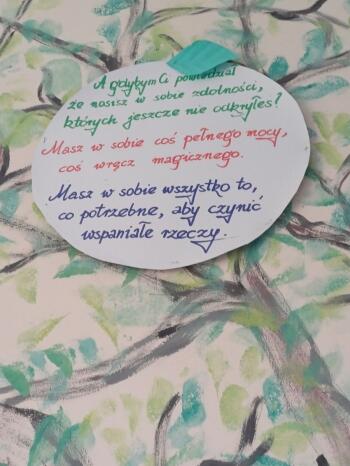 A gdybym Ci powiedział
że nosisz w sobie zdolności,
których jeszcze nie odkryłeś?
Masz w sobie coś pełnego mocy,
coś wręcz magicznego.
Masz w sobie wszystko to,
co potrzebne, aby czynić
wspaniałe rzeczy.